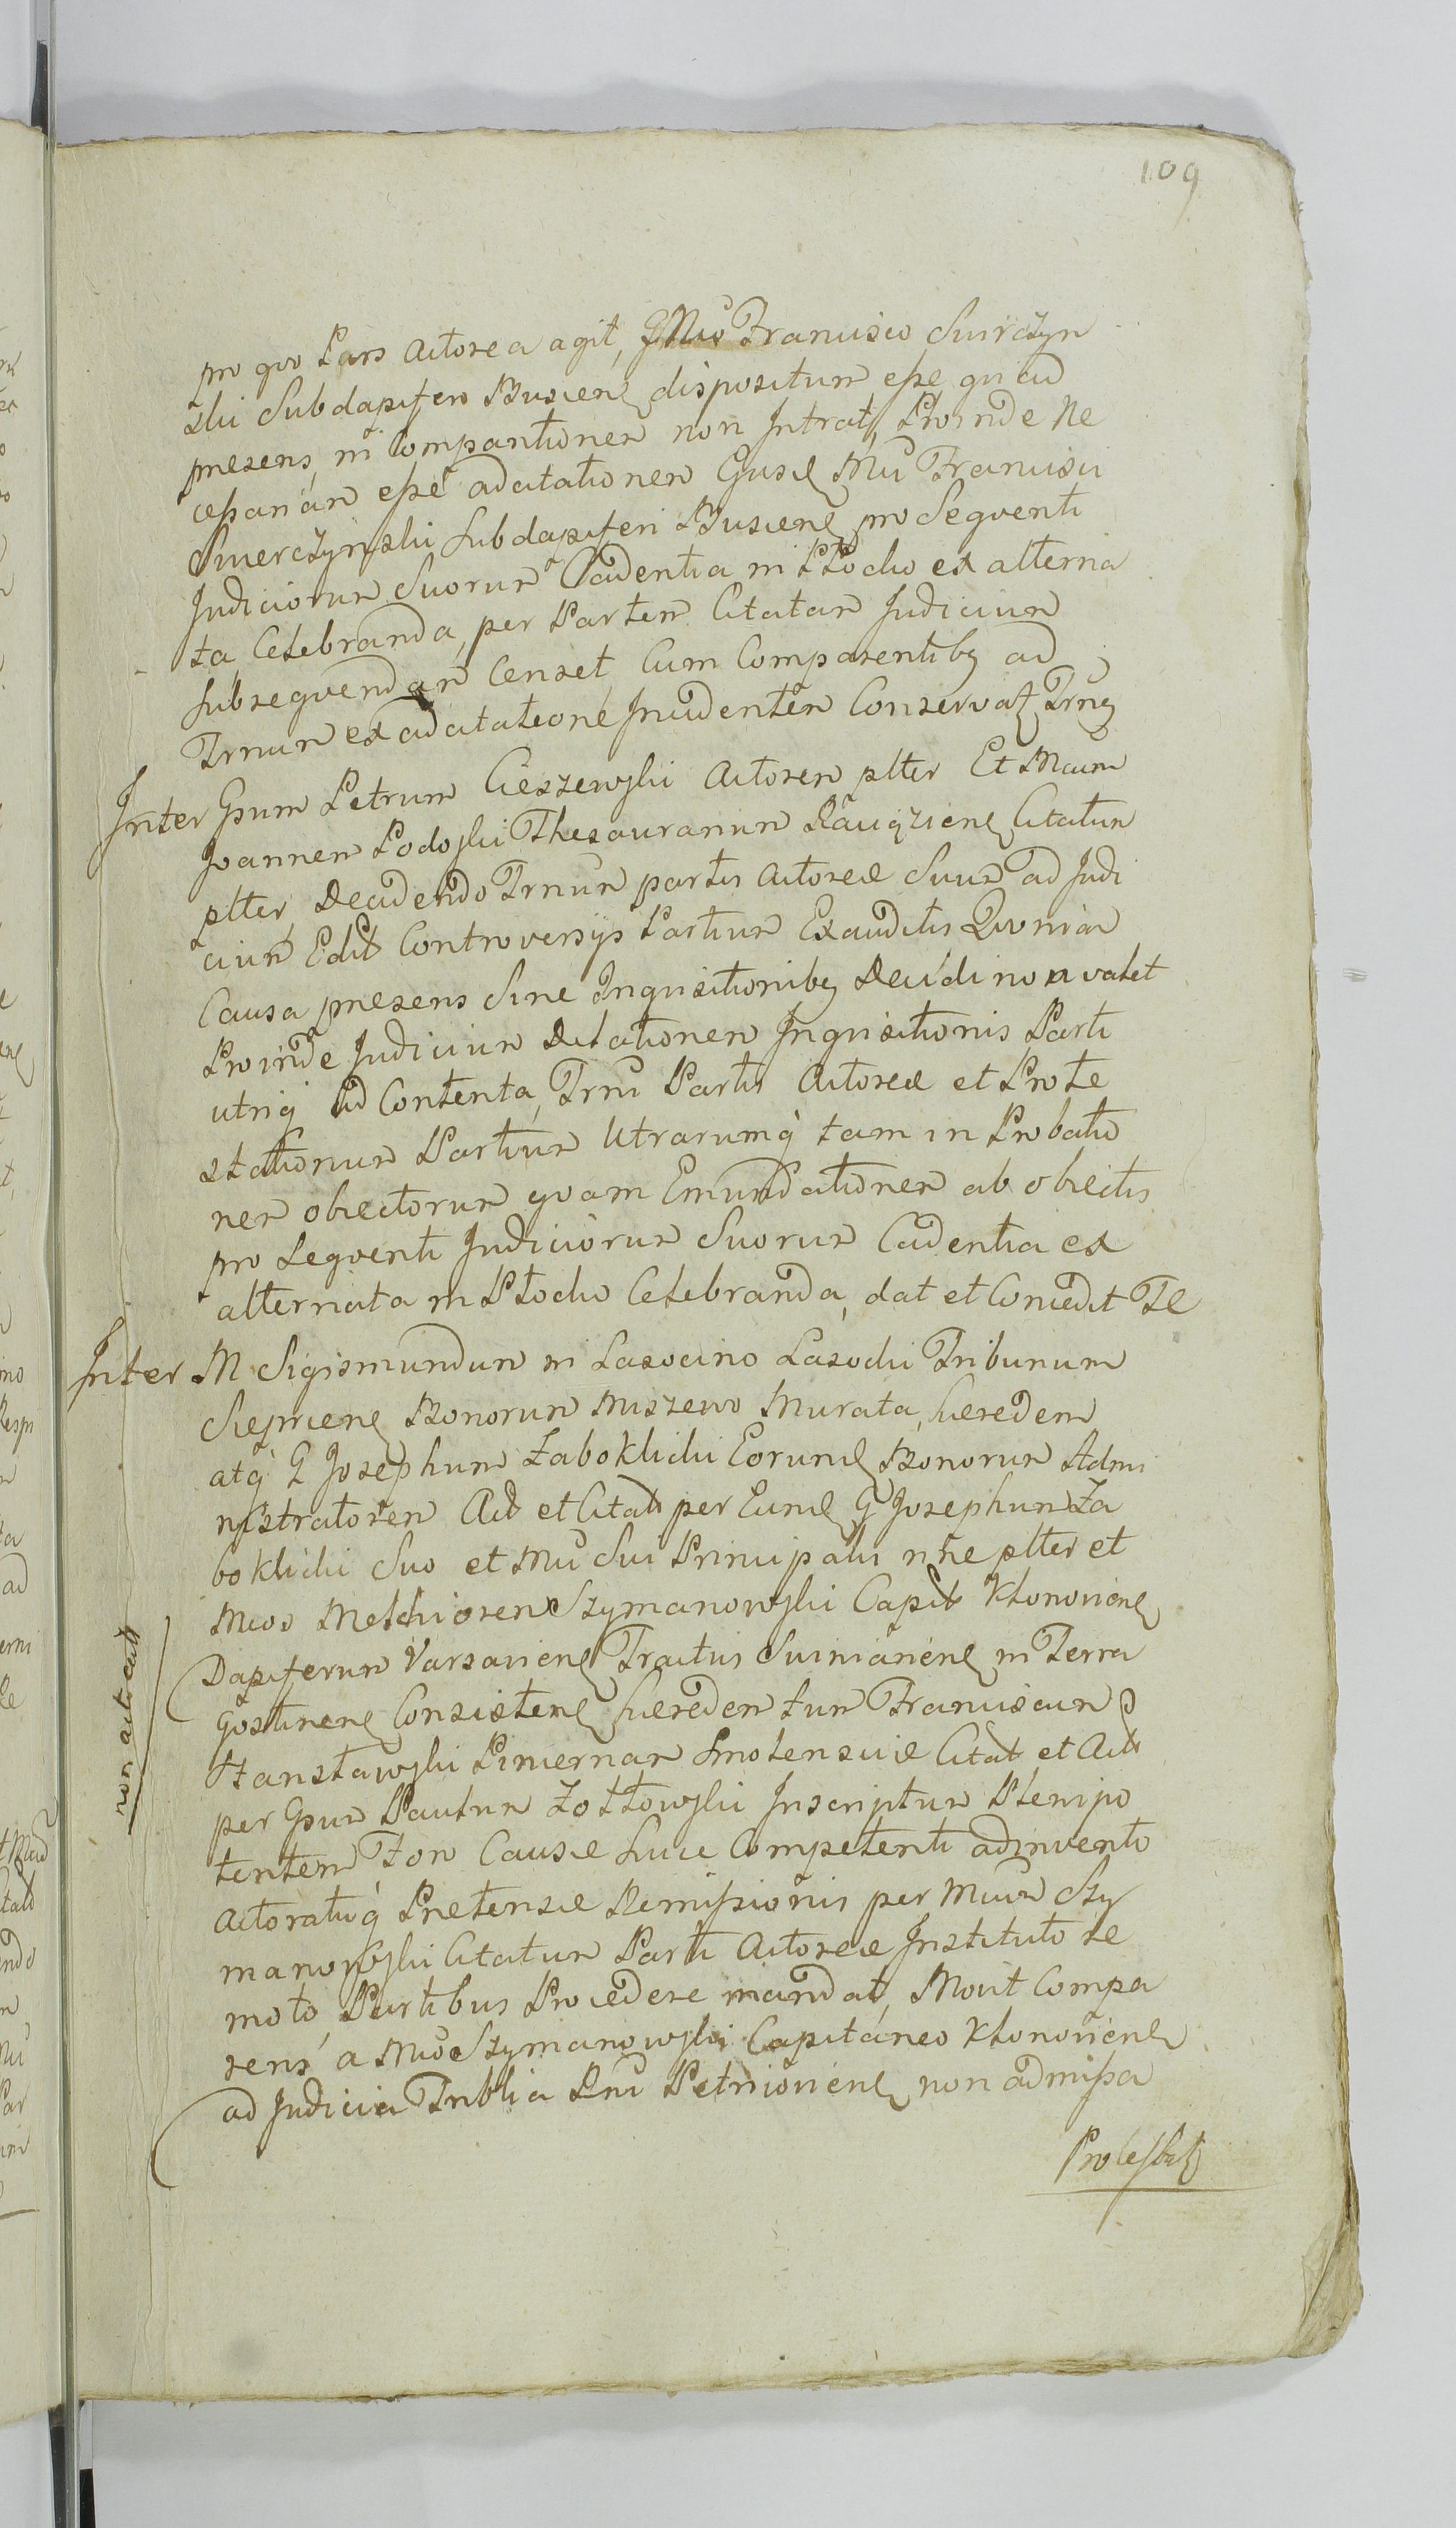 109
pro quo Pars Actorea agit, GMco Francisco Swirczyn
ski Subdapifero Buscens dispositum esse quod
presens in Compartionem non Intrat, Proinde Ne
cessariam esse adcitationem Gnsi Mci Francisci
Swierczynski Subdapiferi Buscens pro Seqventi
Judiciorum Suorum Cadentia in Płocko ex alterna
ta Celebranda, per Partem Citatam Judicium
Subseqvendam Censet Cum Comparentibq ad
Trnum ex adcitatione Incidentem Conservat Trnq
Inter Gsum Petrum Cieszewski Actorem plter Et Mcum
Joannem Podoski Thesaurarium Raciąziens Citatum
plter, Decidendo Trnum partis Actoreæ Suum ad Judi
cium Edit Controversijs Partium Exauditis Qvoniam
Causa presens Sine Inquisitionibq Decidi non valet
Proinde Judicium Delationem Inquisitionis Parti
utriq ad Contenta, Trni Partis Actoreæ et Prote
stationum Partium Utrarumq tam in Probatio
nem obiectorum qvam Emundationem ab obiectis
pro Seqventi Judiciorum Suorum Cadentia ex
alternata in Płocko Celebranda, dat et Concedit Te
Inter M Sigismundum in Lasocino Lasocki Tribunum
Sieprcens Bonorum Miszewo Murata, hæredem
atq G Josephum Zaboklicki Eorund Bonorum Admi
nistratorem Act et Citatt per Eund G Josephum Za
boklicki Suo et Mci Sui Principalis nne plter et
Mcos Melchiorem Szymanowski Capit Kłonoviens
Dapiferum Varsaviens Tractus Suiniariens in Terra
Gostinens Consistens hæredem tum Franciscum
Stanstawski Pincernam Smolensciæ Citat et Act
per Gsum Paulum Zołtowski Inscriptum Plenipo
tentem Foro Causæ huic Competenti adinvento
Actoratuq Pretensæ Remissionis per Mcum Szy
manowski Citatum Parti Actoreæ Instituto Se
moto, Partibus Procedere mandat, Movit Compa
rens a Mco Szymanowski Capitaneo Kłonoviens
ad Judicia Triblia Rni Petricoviens non admissa
Protestat
non acticatt